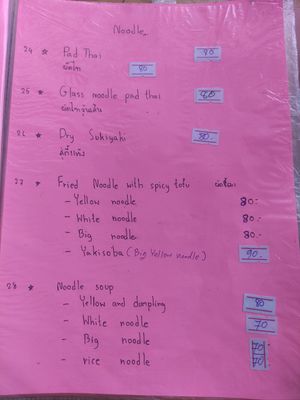 Noodle
24 * Pad Thai 80
ผัดไท 80
25 * Glass noodle pad thai 80
ผัดไทวุ้นเส้น
26 * Dry Sukiyaki 80.-
สุกี้แห้ง
27 * Fried Noodle with spicy tofu
- Yellow noodle 80.-
- White noodle 80.-
- Big noodle 80.-
- Yakisoba (Big Yellow noodle) 90.-
28 * Noodle soup
- Yellow and dumpling 80
- White noodle 70
- Big noodle 70
- rice noodle 70